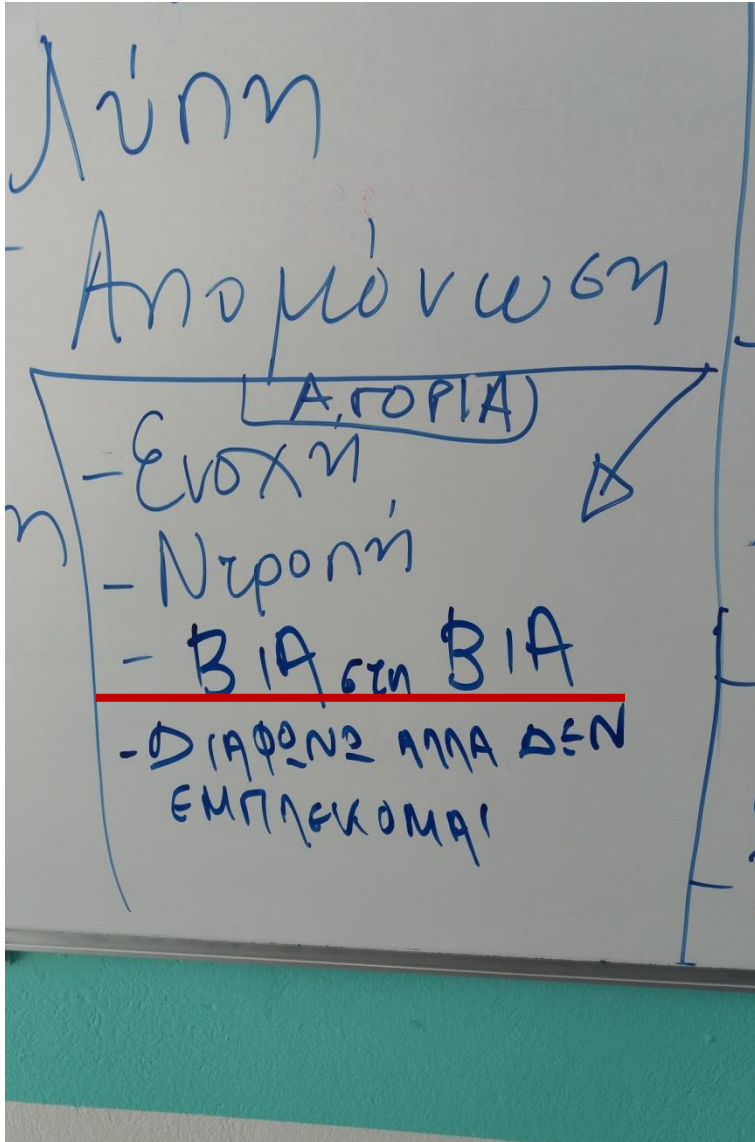 Λύπη
- Απομόνωση
ΑΓΟΡΙΑ
- Ενοχή
- Ντροπή
- ΒΙΑ στη ΒΙΑ
- ΔΙΑΦΩΝΩ ΑΛΛΑ ΔΕΝ
ΕΜΠΛΕΚΟΜΑΙ